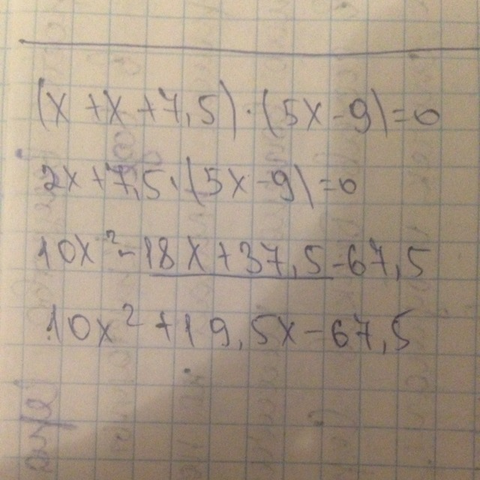 (x + x + 7,5) · (5x - 9) = 0
2x + 7,5 · (5x - 9) = 0
10x² - 18x + 37,5 - 67,5
10x² + 19,5x - 67,5